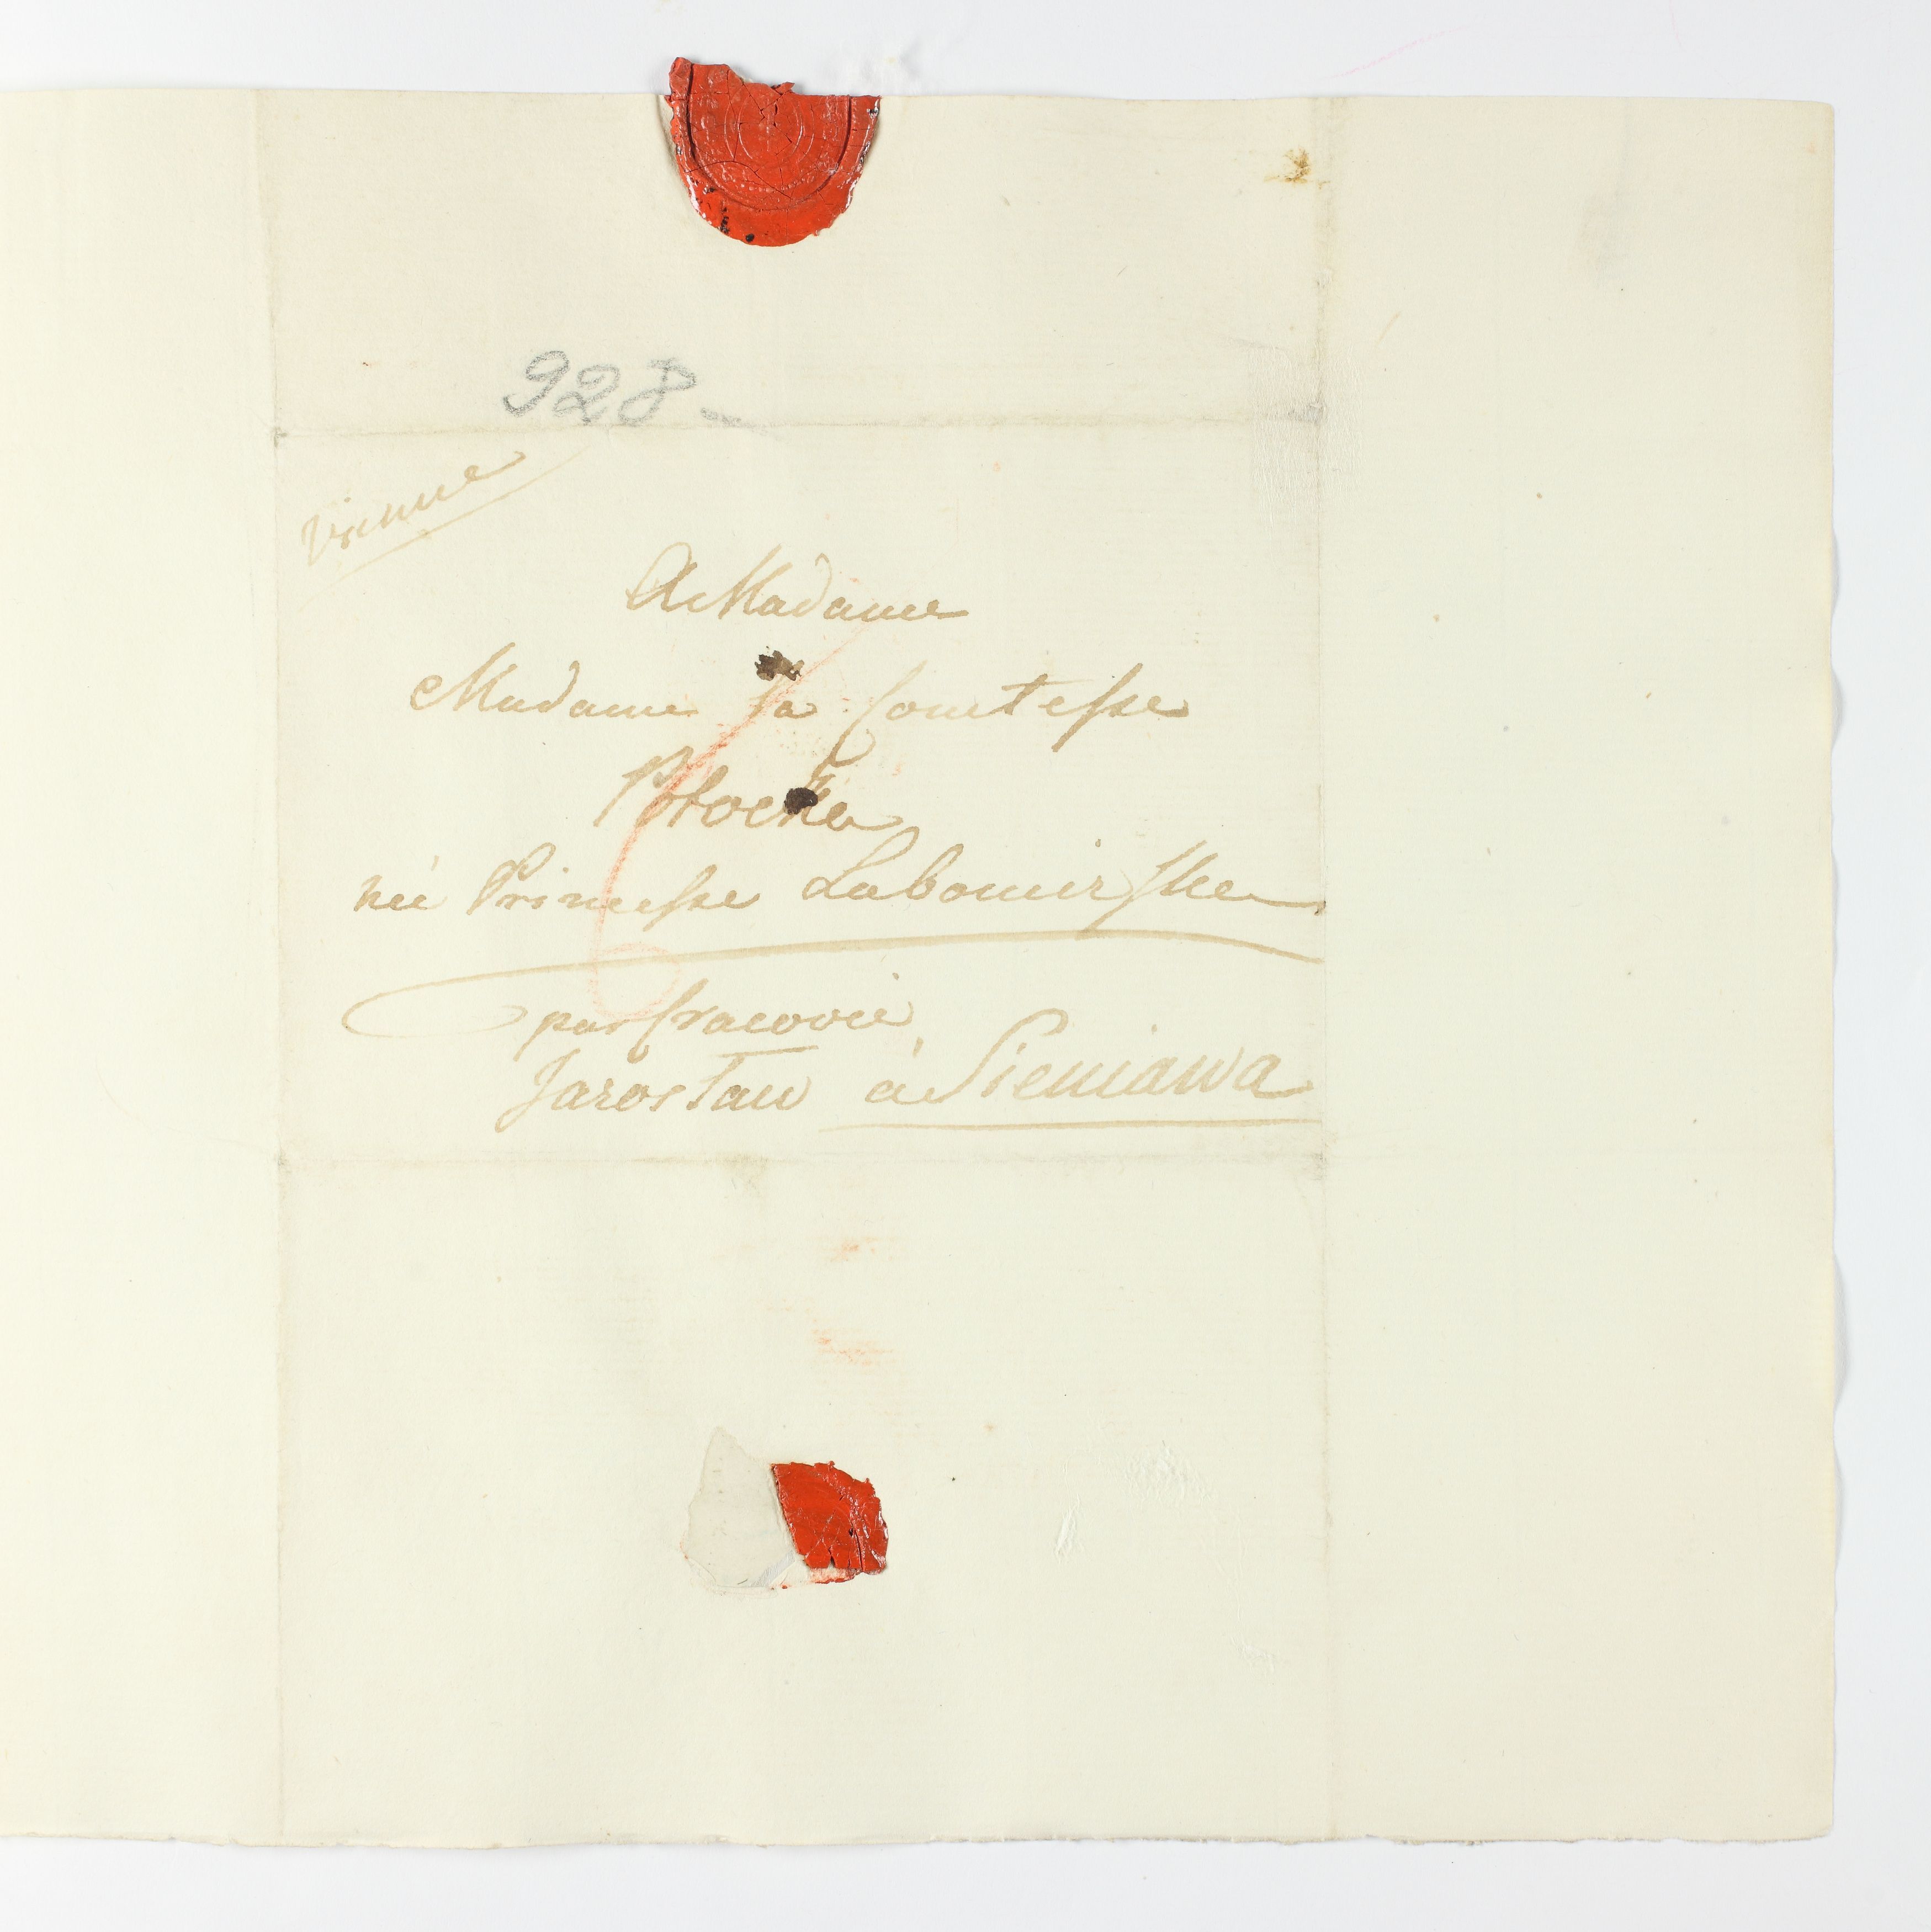 928
Vienne
A Madame
Madame la Comtesse
Potocka
née Princesse Lubomirska
par Cracovie
Jaroslau à Sieniawa